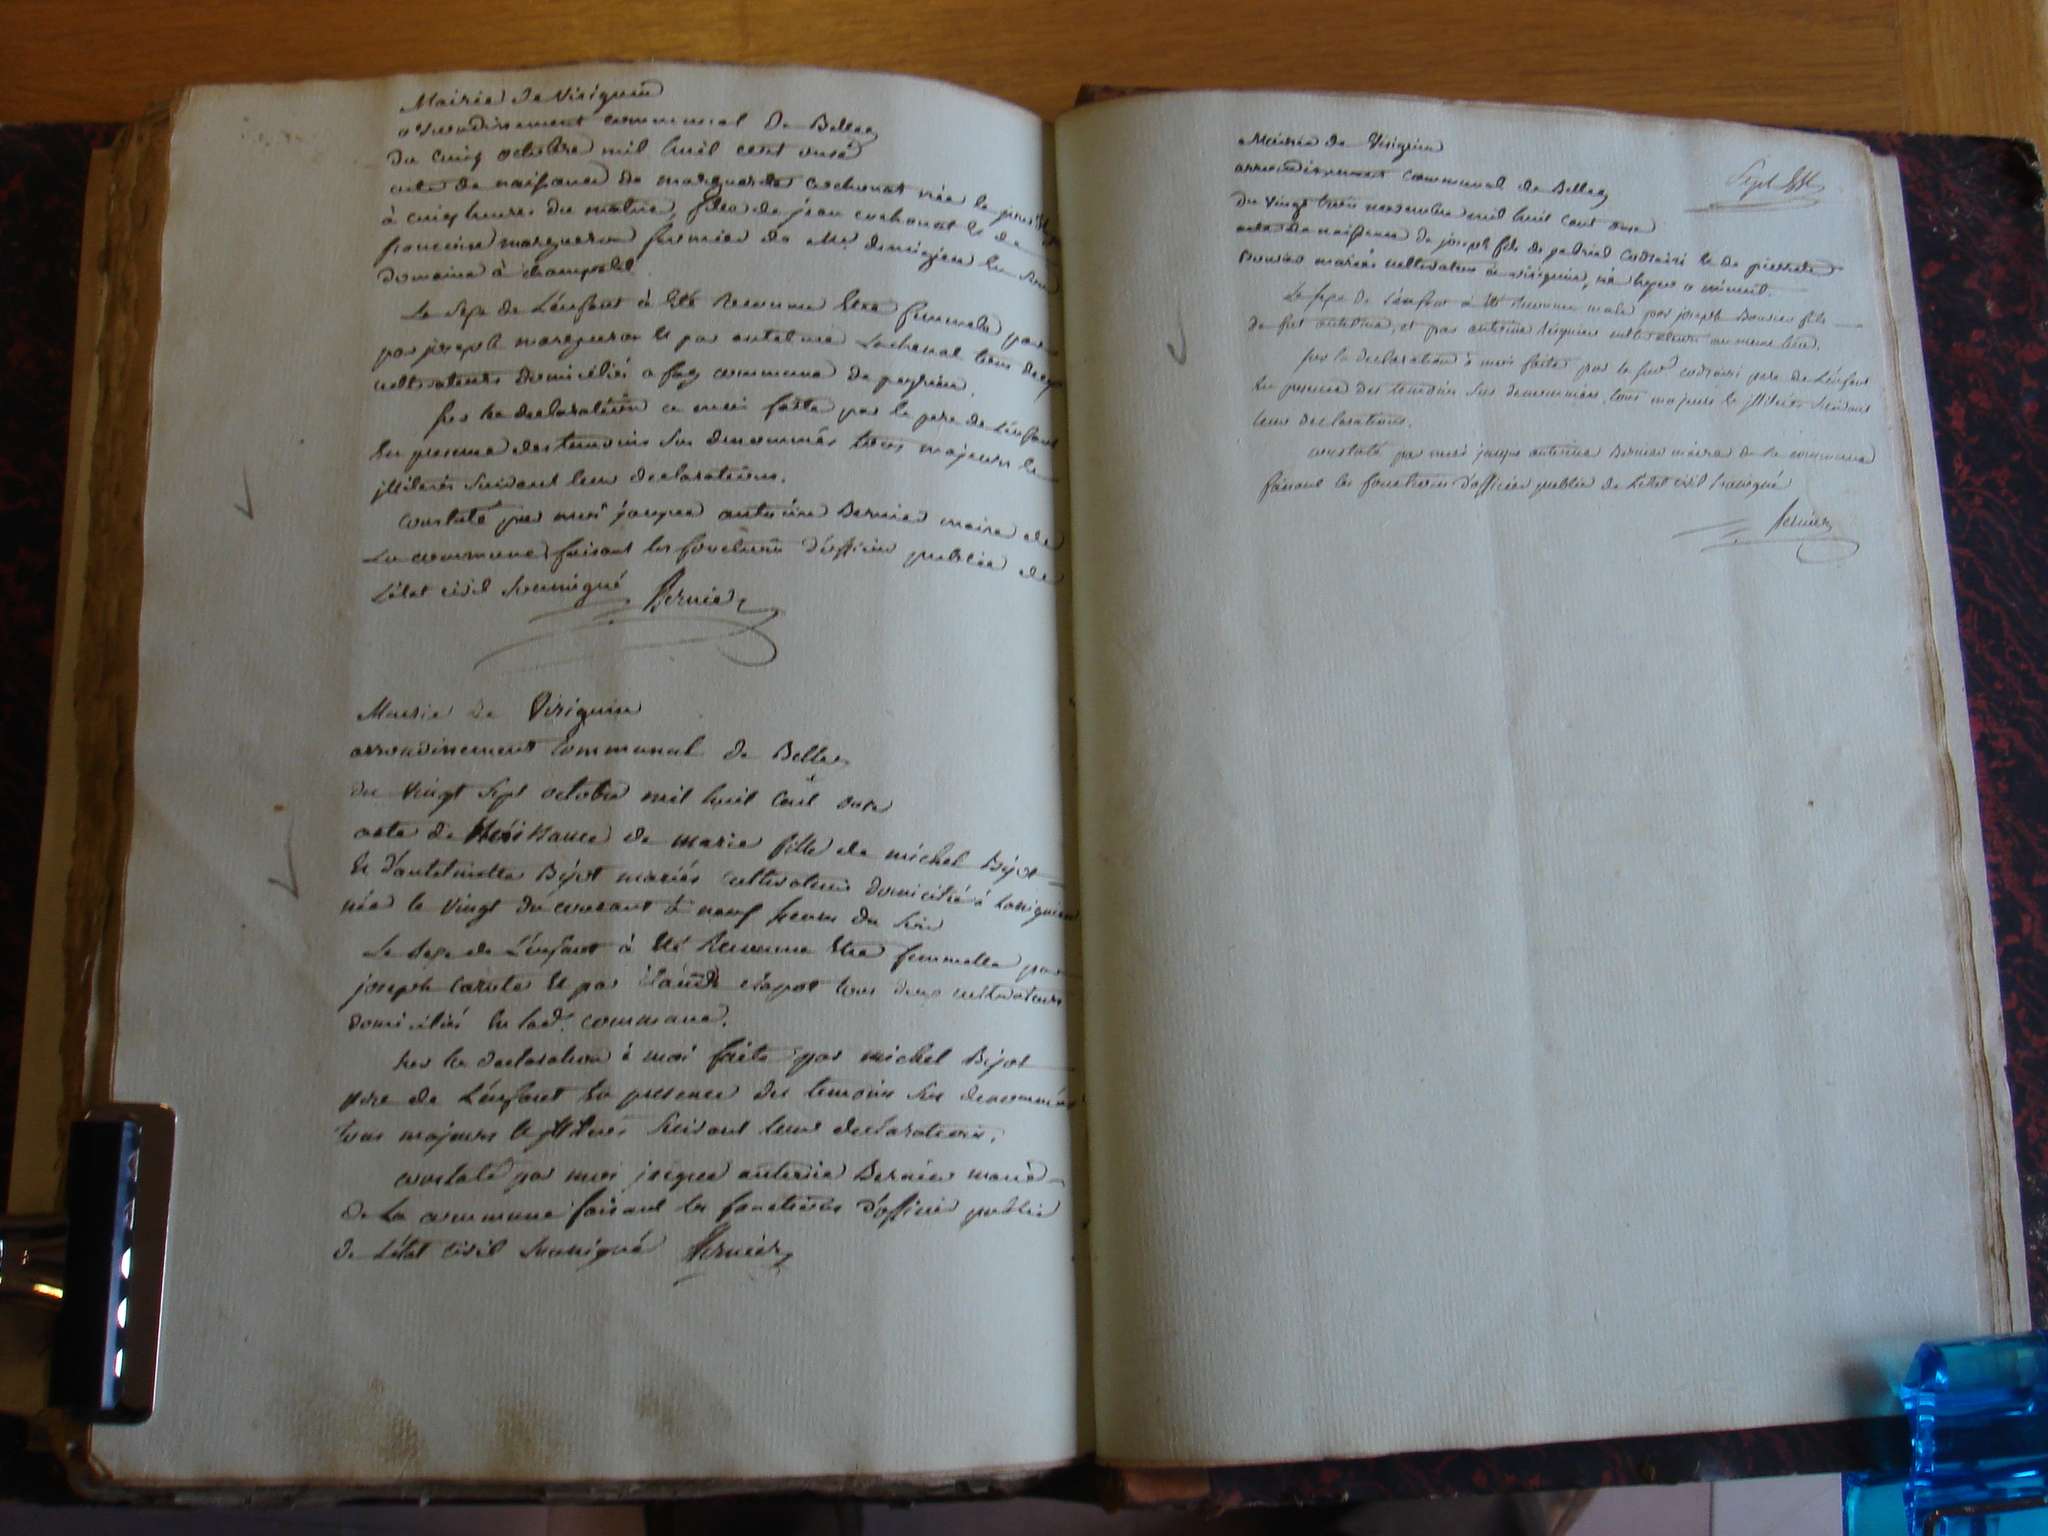 Mairie de Virignin
arrondissement communal de Belley
du cinq octobre mil huit cent onze
acte de naissance de marguerite cochonat née le jour
à cinq heures du matin, filla de jean cochonat et de
francoise margueron fermier de Mr
domaine à
Le sexe de L'enfant à Eté Reconnu Etre femmelle par
par joseph margueron et par antelme Lochenal tous deux
cultivateurs domiciliés a fay commune de peyrieu.
sur la declaration a moi faite par le pere de L'enfant
En presence des temoins sus denommés tous majeurs et
jlliterés suivant leur declarations.
constaté par moi jacque antoine Bernier maire de
La commune faisant les fonctions d'officier publice de
L'état civil soussigné Bernier
Mairie de Virignin
arrondinement Communal de Belley
du vingt sept octobre mil huit cent onze
acte de Naissance de marie fille de michel Béjot
et d'antelmette Béjot mariés cultivateurs domicilié à
née le vingt du courant à neuf heures du soir
Le sexe de L'enfant à Eté Reconnu Etre femmelle par
joseph et par Claude tous deux cultivateurs
domiciliés En lad. commune.
sur la declaration à moi faite par michel Béjot
pere de L'enfant En presence des temoins sus denommés
tous majeurs et jlliterés suivant leurs declarations.
constaté par moi jacque antoine Bernier maire
de La commune faisant les fonctions d'officier public
de L'état civil soussigné Bernier
Sept
Mairie de Virignin
arrondissement communal de Belley
du vingt trois novembre mil huit cent onze
acte de naissance de joseph fils de gabriel et de pierrette
mariés cultivateurs à virignin, né hyer a minuit.
Le sexe de L'enfant à Eté Reconnu male par joseph fils
de feu antelme, et par antoine cultivateurs au meme lieu.
sur la declaration à moi faite par le sud. pere de L'enfant
En presence des temoins sus denommés, tous majeurs et jlliterés suivant
leurs declarations.
constaté par moi jacque antoine Bernier maire de la commune
faisant les fonctions d'officier public de L'état civil soussigné
Bernier